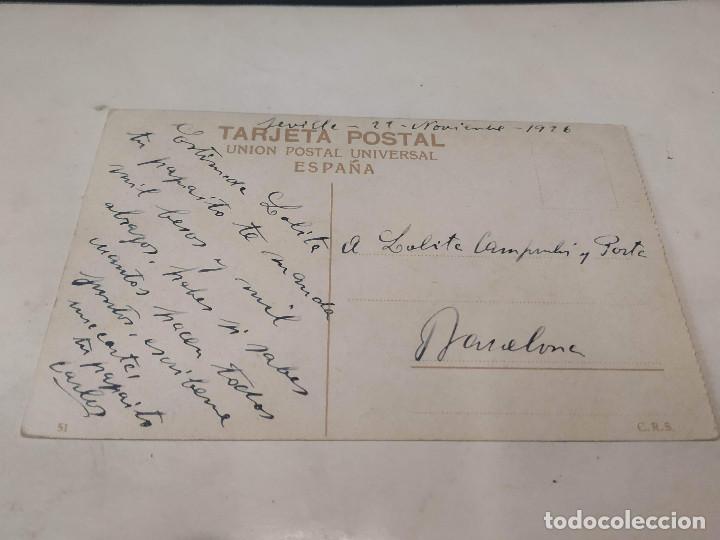 Sevilla - 21 - Noviembre - 1926
TARJETA POSTAL
UNION POSTAL UNIVERSAL
ESPAÑA
Estimada Lolita
tu papaito te manda
mil besos y mil
abrazos, haber si sabes
cuantos hacen todos
juntos, escribeme
una carta,
tu papaito
Carlos
A Lolita y Porta
Barcelona
51
C.R.S.
todocoleccion